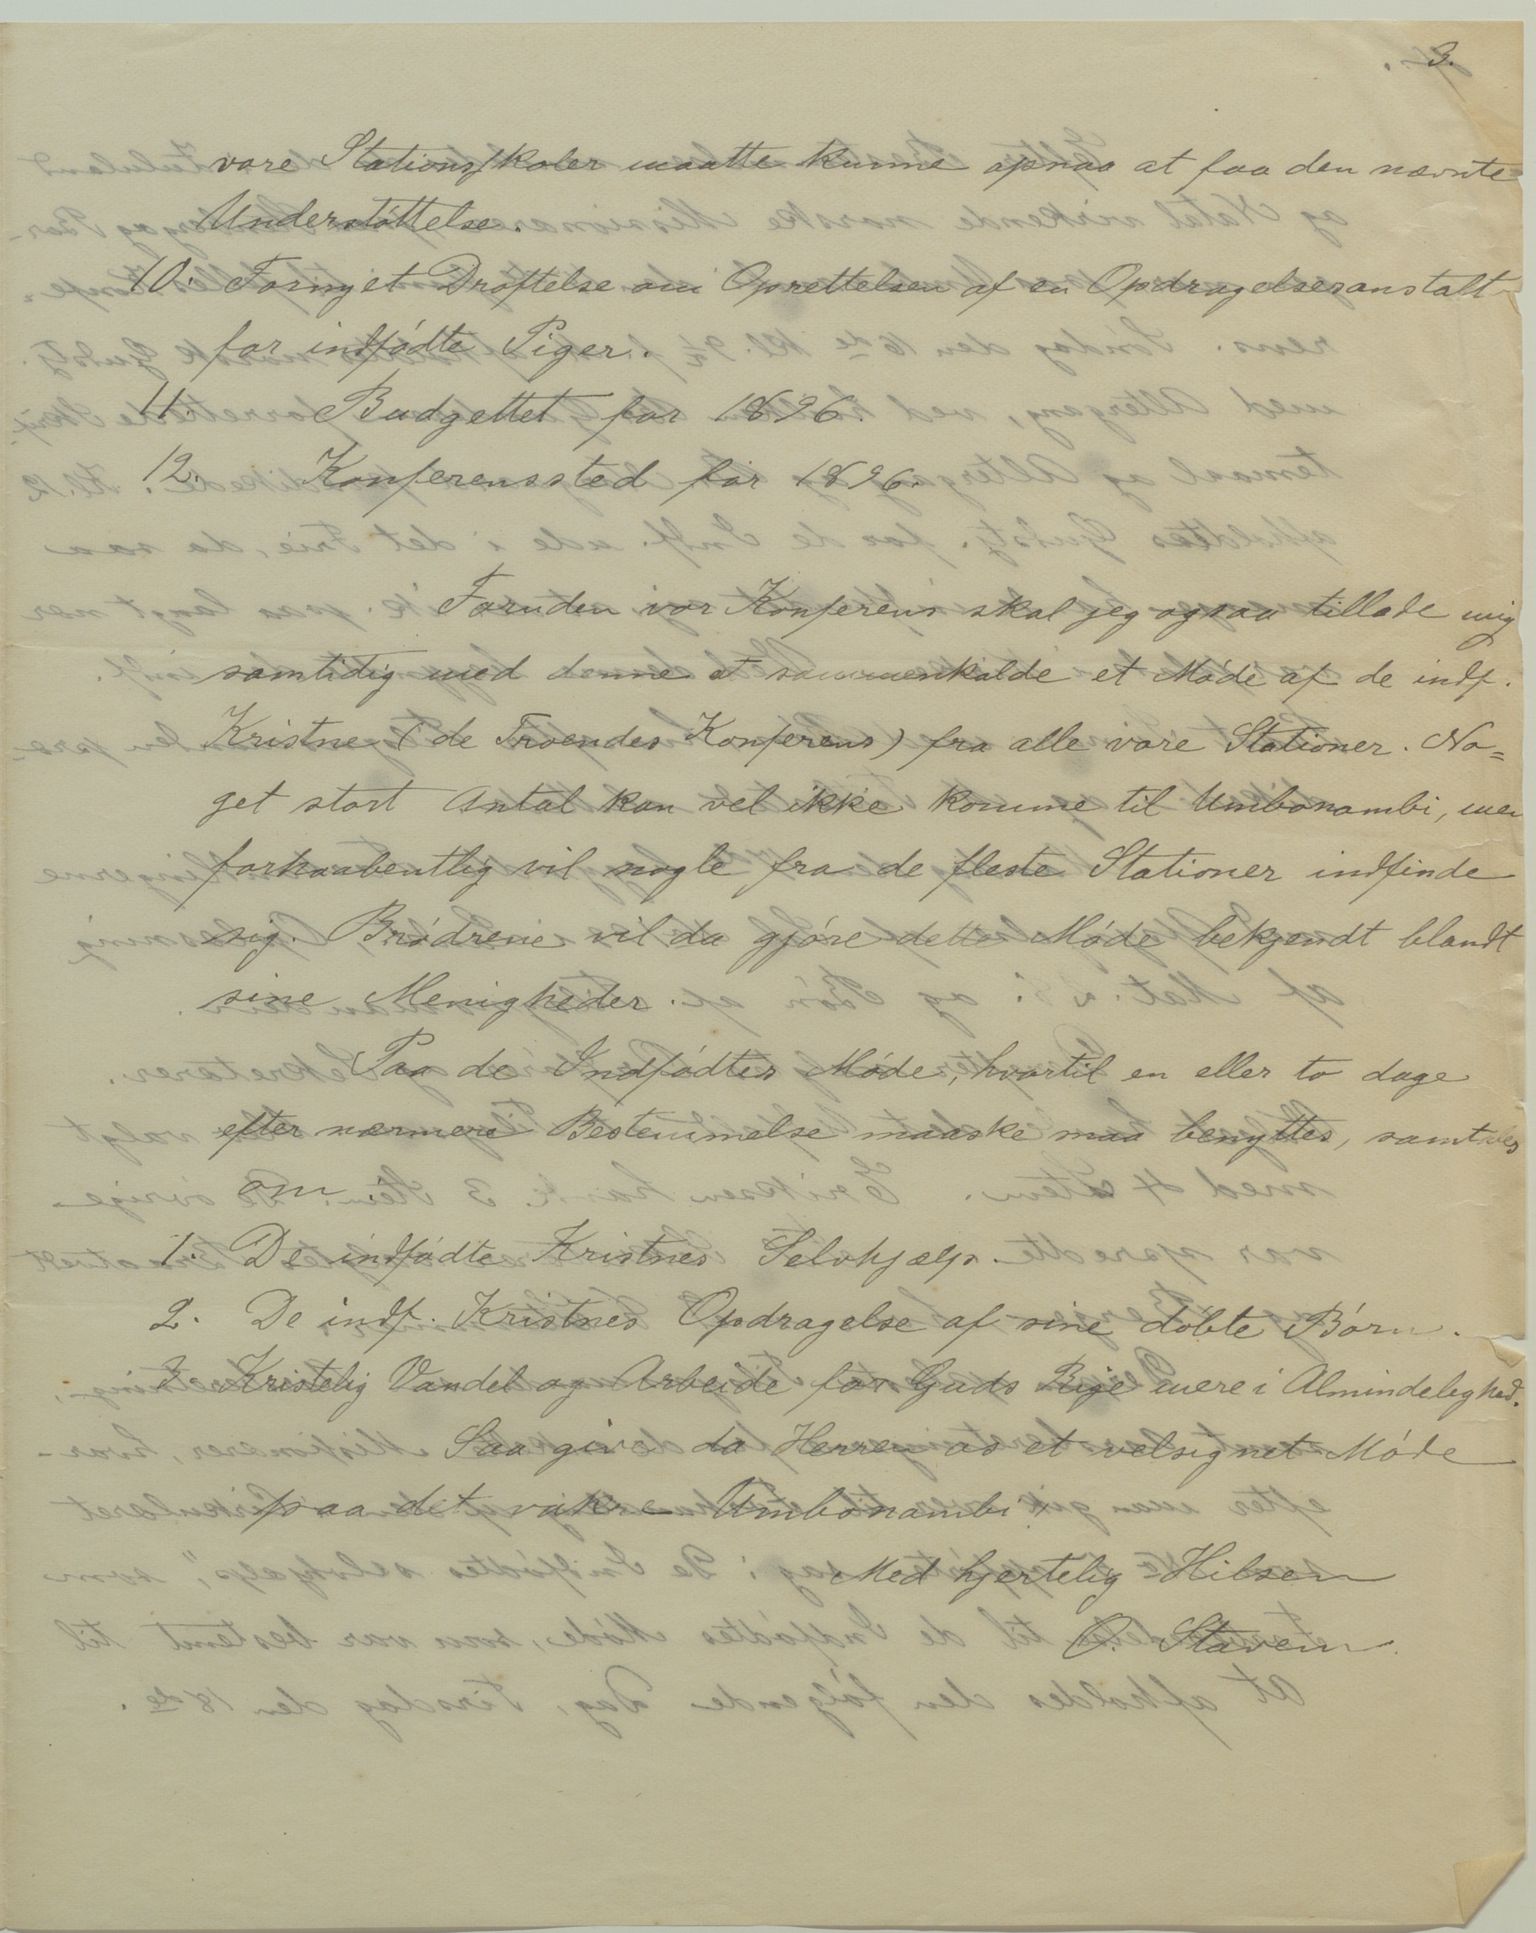 3.
vore Stationsskoler maatte kunne opnaa at faa den nævnte
Understøttelse.
10. Fornyet Drøftelse om Oprettelsen af en Opdragelsesanstalt
for indfødte Piger.
11. Budgettet for 1896.
12. Konferenssted for 1896.
Foruden vor Konferens skal jeg ogsaa tillade mig
samtidig med denne at sammenkalde et Møde af de indf.
Kristne (de Troendes Konferens) fra alle vore Stationer. No=
get stort Antal kan vel ikke komme til Umbonambi, men
forhaabentlig vil nogle fra de fleste Stationer indfinde
sig. Brødrene vil da gjøre dette Møde bekjendt blandt
sine Menigheder.
Paa de Indfødtes Møde, hvortil en eller to dage
efter nærmere Bestemmelse maaske maa benyttes, samtales
om
1. De indfødte Kristnes Selvhjælp.
2. De indf. Kristnes Opdragelse af sine døbte Børn.
3. Kristelig Vandel og Arbeide for Guds Rige mere i Almindelighed.
Saa give da Herren os et velsignet Møde
paa det vakre Umbonambi!
Med hjertelig Hilsen
O. Stavem